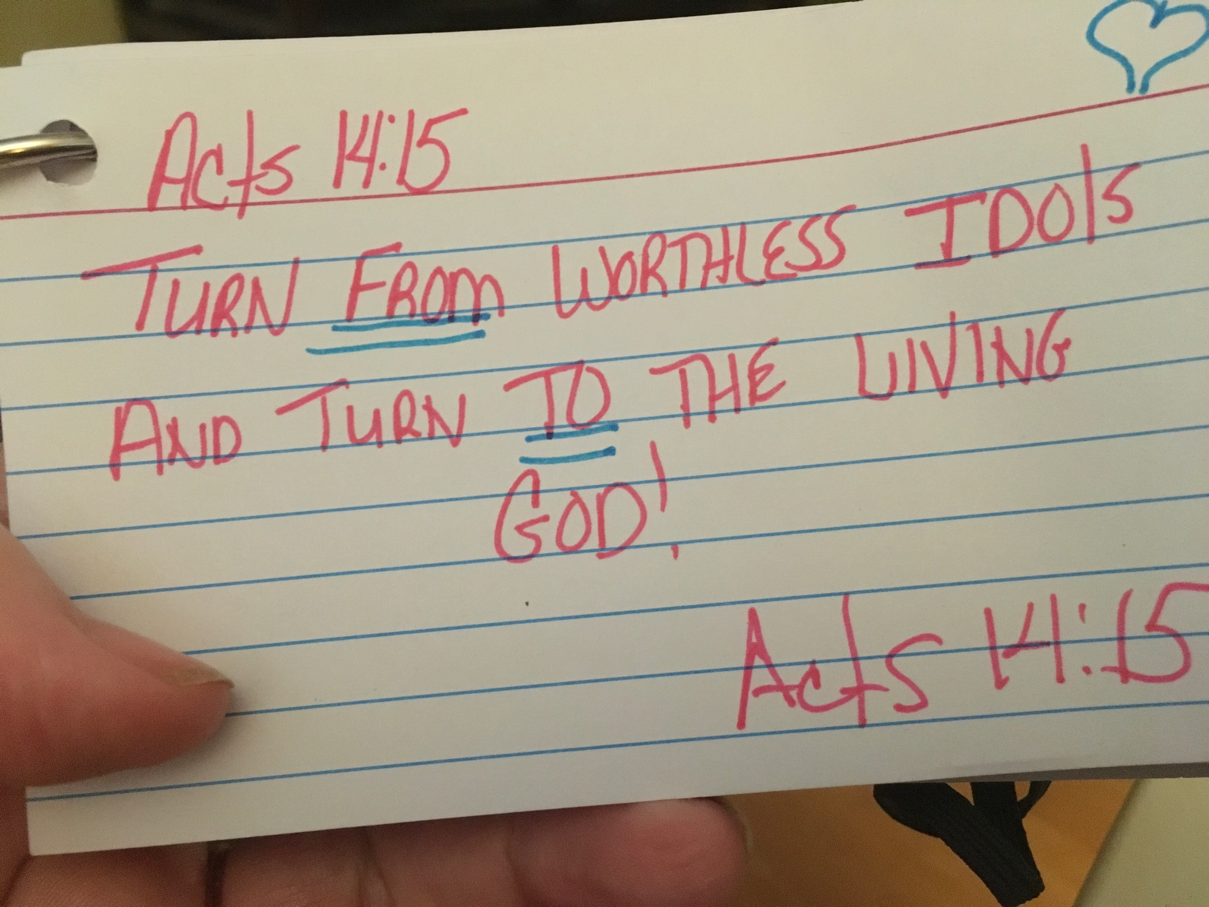 Acts 14:15
TURN FROM WORTHLESS IDOlS
AND TURN TO THE LIVING
GOD!
Acts 14:15